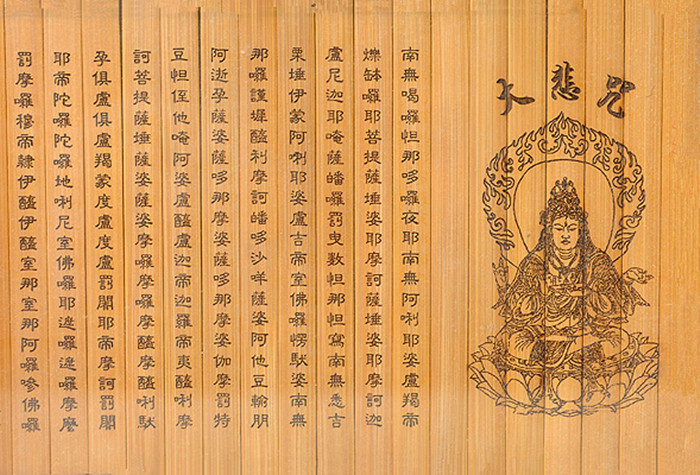 大悲咒
南無喝囉怛那哆囉夜耶南無阿唎耶婆盧羯帝
爍缽囉耶菩提薩埵婆耶摩訶薩埵婆耶摩訶迦
盧尼迦耶唵薩皤囉罰曳數怛那怛寫南無悉吉
栗埵伊蒙阿唎耶婆盧吉帝室佛囉愣馱婆南無
那囉謹墀醯利摩訶皤哆沙咩薩婆阿他豆輸朋
阿逝孕薩婆薩哆那摩婆薩哆那摩婆伽摩罰特
豆怛侄他唵阿婆盧醯盧迦帝迦羅帝夷醯唎摩
訶菩提薩埵薩婆薩婆摩囉摩囉摩醯摩醯唎馱
孕俱盧俱盧羯蒙度盧度盧罰闍耶帝摩訶罰闍
耶帝陀囉陀囉地唎尼室佛囉耶遮囉遮囉摩麼
罰摩囉穆帝隸伊醯伊醯室那室那阿囉嘇佛囉